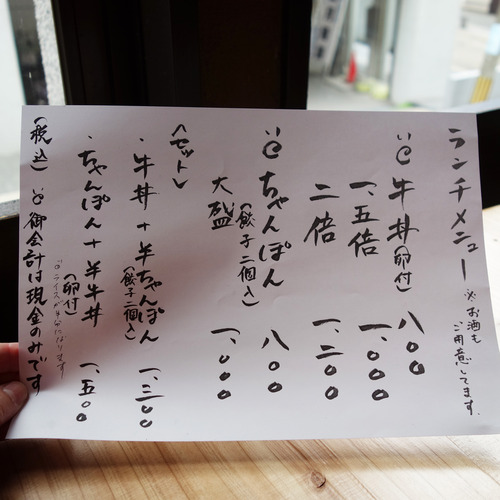 ランチメニュー ※お酒もご用意してます。
牛丼(卵付) 八〇〇
一、五倍 一、〇〇〇
二倍 一、二〇〇
ちゃんぽん(餃子二個入) 八〇〇
大盛 一、〇〇〇
〈セット〉
・牛丼+半ちゃんぽん(餃子二個入) 一、三〇〇
・ちゃんぽん+半牛丼(卵付) 一、五〇〇
ライスが半分になります
(税込) 御会計は現金のみです